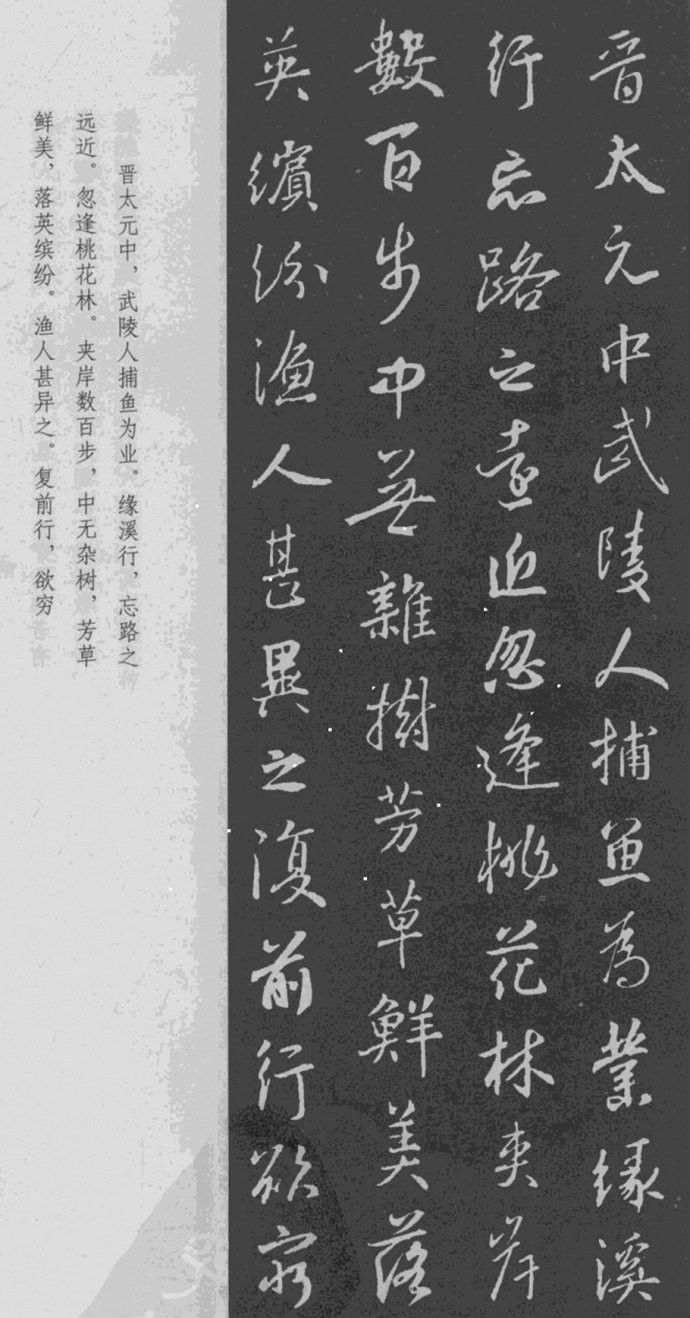 晋太元中武陵人捕鱼為業缘溪
行忘路之遠近忽逢桃花林夹岸
數百步中無雜樹芳草鮮美落
英繽纷渔人甚異之復前行欲窮
晋太元中，武陵人捕鱼为业。缘溪行，忘路之
远近。忽逢桃花林。夹岸数百步，中无杂树，芳草
鲜美，落英缤纷。渔人甚异之。复前行，欲穷